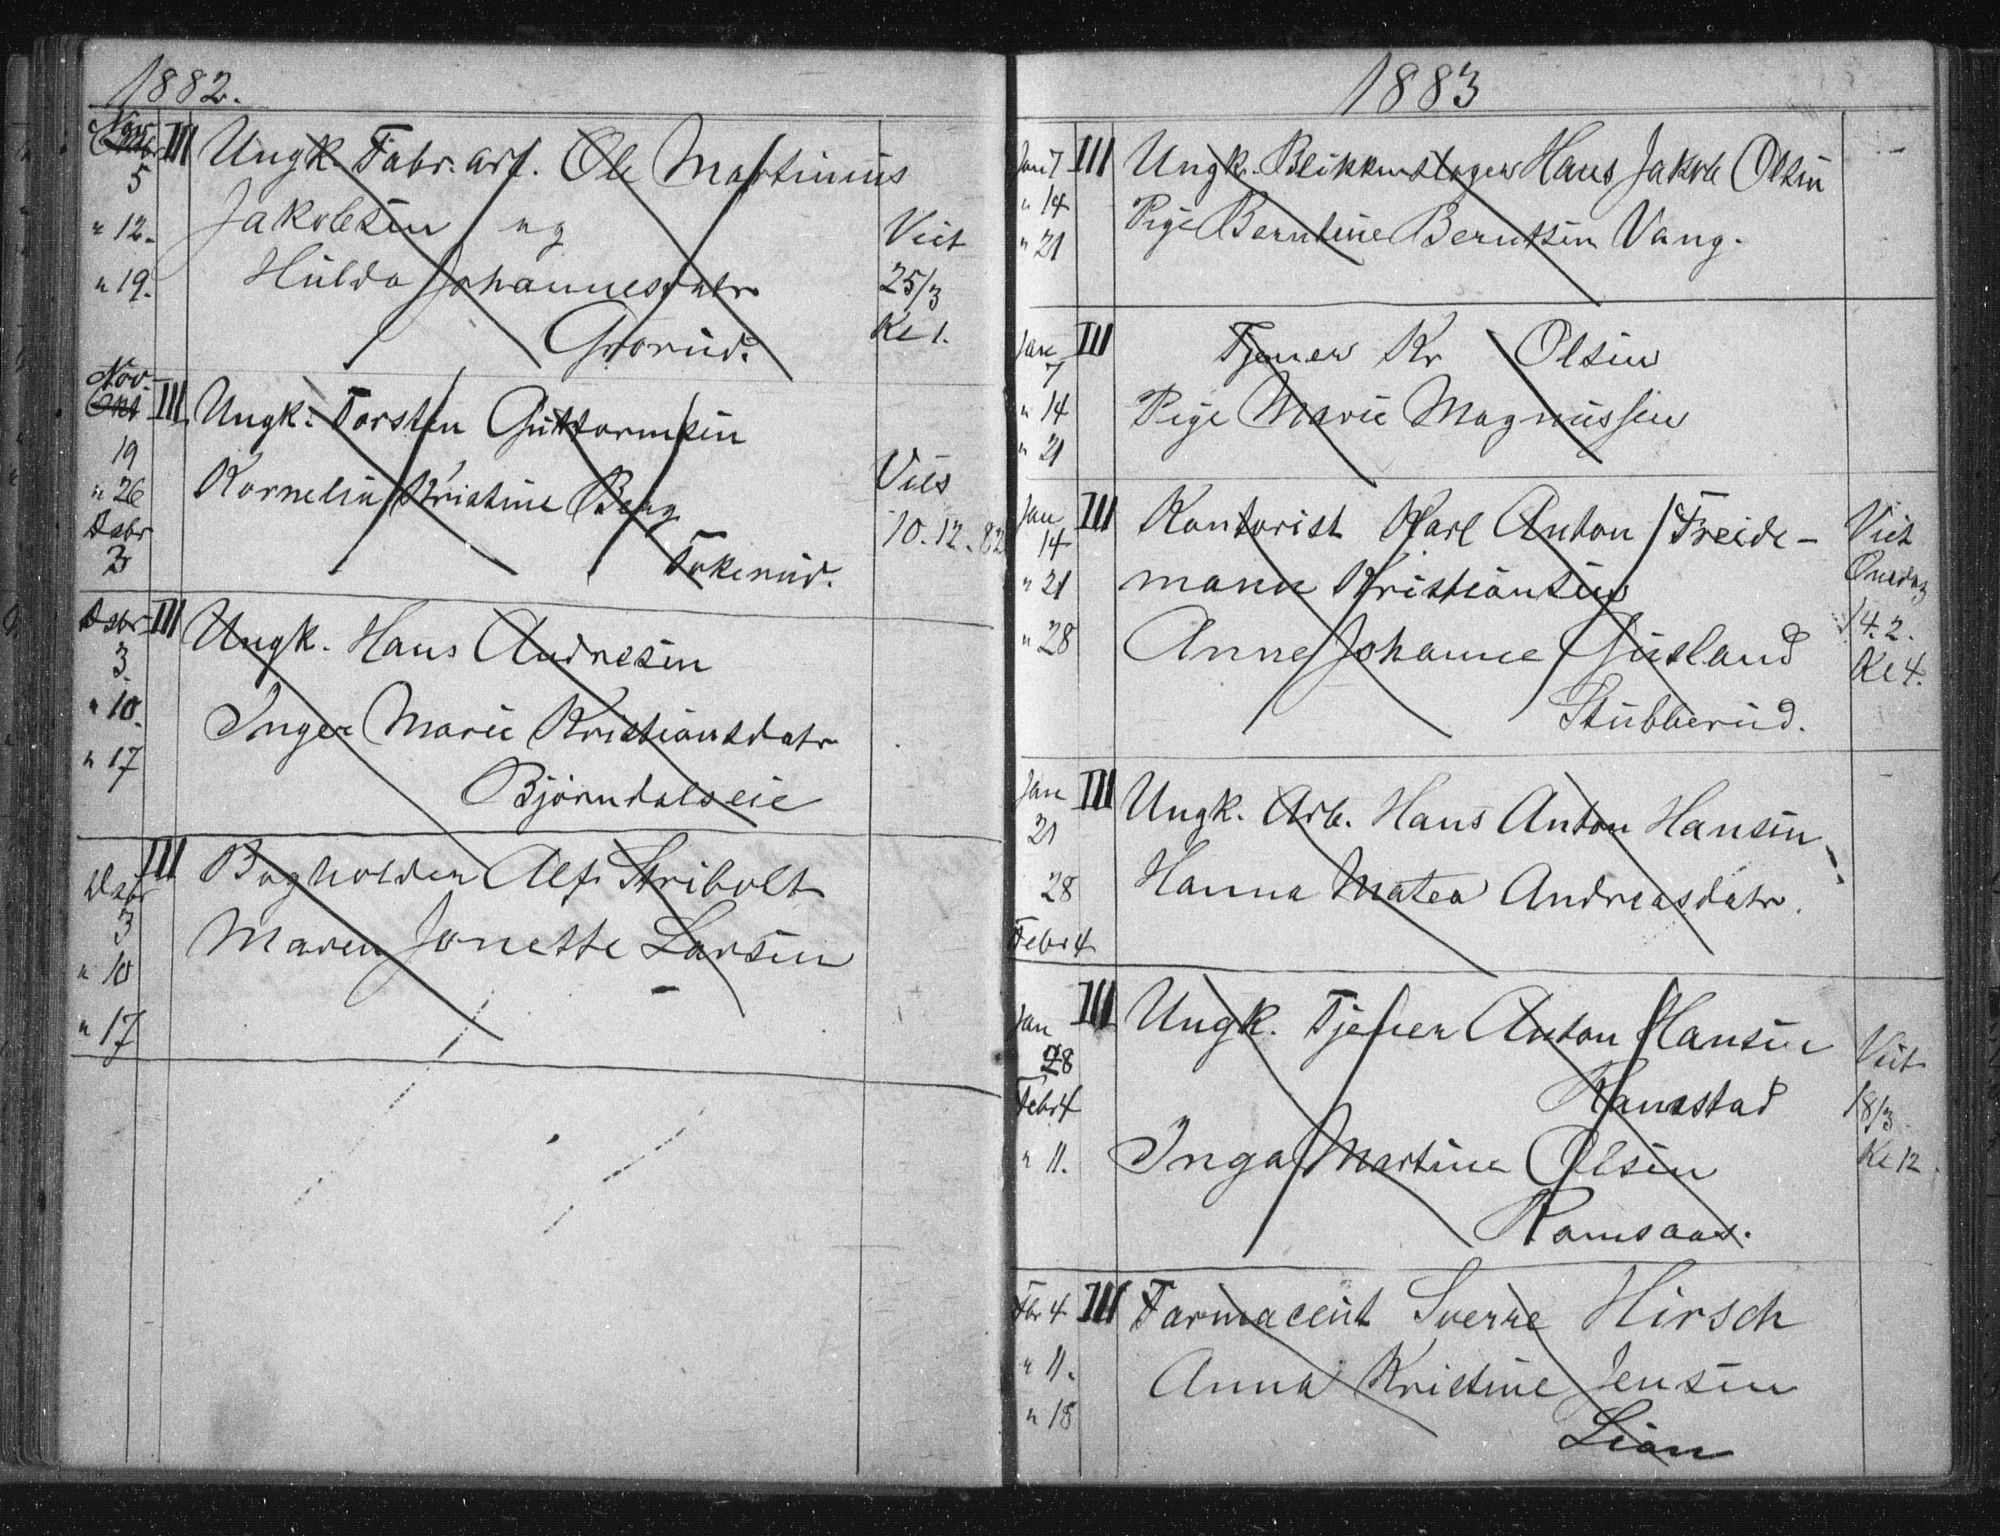 1882.
Nov
5
" 12.
" 19.
III
Ungk. Fabr. arb. Ole Martinius
Jakobsen og
Hulda Johannesdatr
Grorud.
Viet
25/3
Kl 1.
Nov.
Okt
19
" 26
Dsbr
3
III
Ungk. Torsten Guttormsen
Kornelia Kristine Berg
Tokerud.
Vies
10.12.82
Dsbr
3.
" 10.
" 17
III
Ungk. Hans Andresen
Inger Marie Kristiansdatr
Bjørndalseie
Dsbr
3
" 10
" 17
III
Bogholder Alf Stribolt
Maren Jonette Larsen
1883
Jan 7
" 14
" 21
III
Ungk. Blikkenslager Hans Jakob Olsen
Pige Berntine Berntsen Vang.
Jan
7
" 14
" 21
III
Tjener Kr Olsen
Pige Marie Magnussen
Jan
14
" 21
" 28
III
Kontorist Karl Anton Freide-
mann Kristiansen
Anne Johanne Gusland
Stubberud.
Viet
Onsdag
14.2.
Kl 4.
Jan
21
28
Febr 4
III
Ungk. Arb. Hans Anton Hansen
Hanna Matea Andreasdatr.
Jan
28
Febr 4
" 11.
III
Ungk. Tjener Anton Hansen
Ramstad
Inga Martine Olsen
Ramsaas.
Viet
18/3.
Kl 12.
Fbr 4
" 11.
" 18
III
Farmaceut Sverre Hirsch
Anna Kristine Jensen
Lian